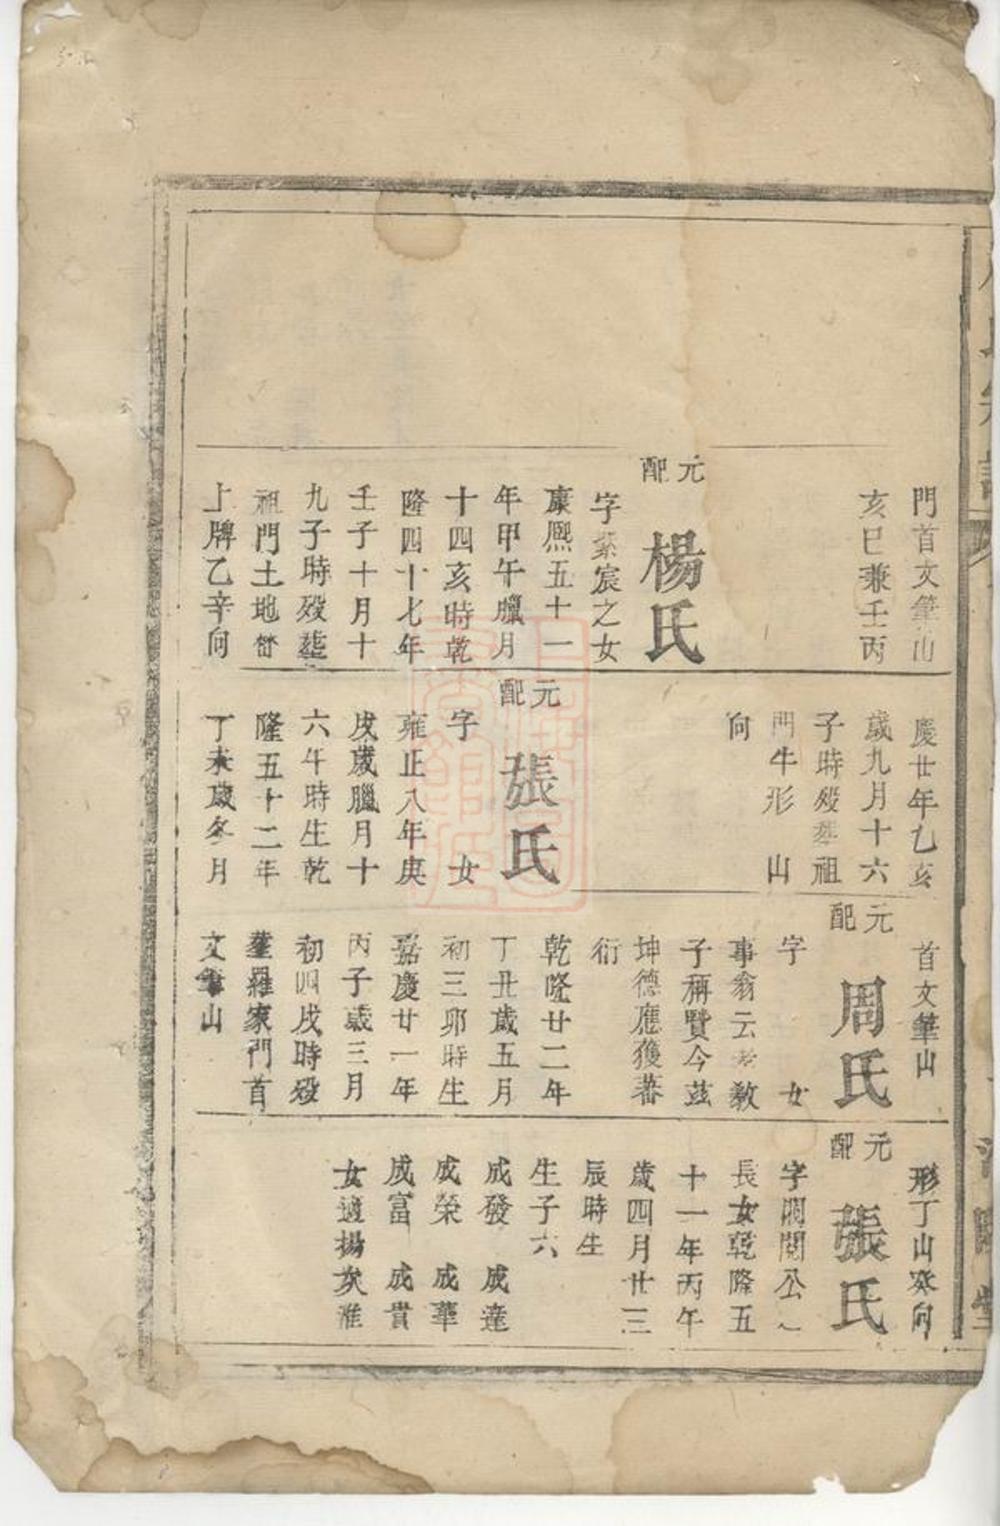 門首文筆山
亥巳兼壬丙
元配
楊氏
字紫宸之女
康熙五十一
年甲午臘月
十四亥時乾
隆四十七年
壬子十月十
九子時歿塟
祖門土地
上牌乙辛向
慶廿年乙亥
歲九月十六
子時歿塟祖
門牛形 山
向
元配
張氏
字 女
雍正八年庚
戌歲臘月十
六午時生乾
隆五十二年
丁未歲冬月
首文筆山
元配
周氏
字 女
事翁云孝教
子稱賢今茲
坤德應獲蕃
衍
乾隆廿二年
丁丑歲五月
初三卯時生
嘉慶廿一年
丙子歲三月
初四戌時歿
塟羅家門首
文筆山
形丁山癸向
元配
張氏
字閣閱公
長女乾隆五
十一年丙午
歲四月廿三
辰時生
生子六
成發 成達
成榮 成華
成富 成貴
女適楊矣准